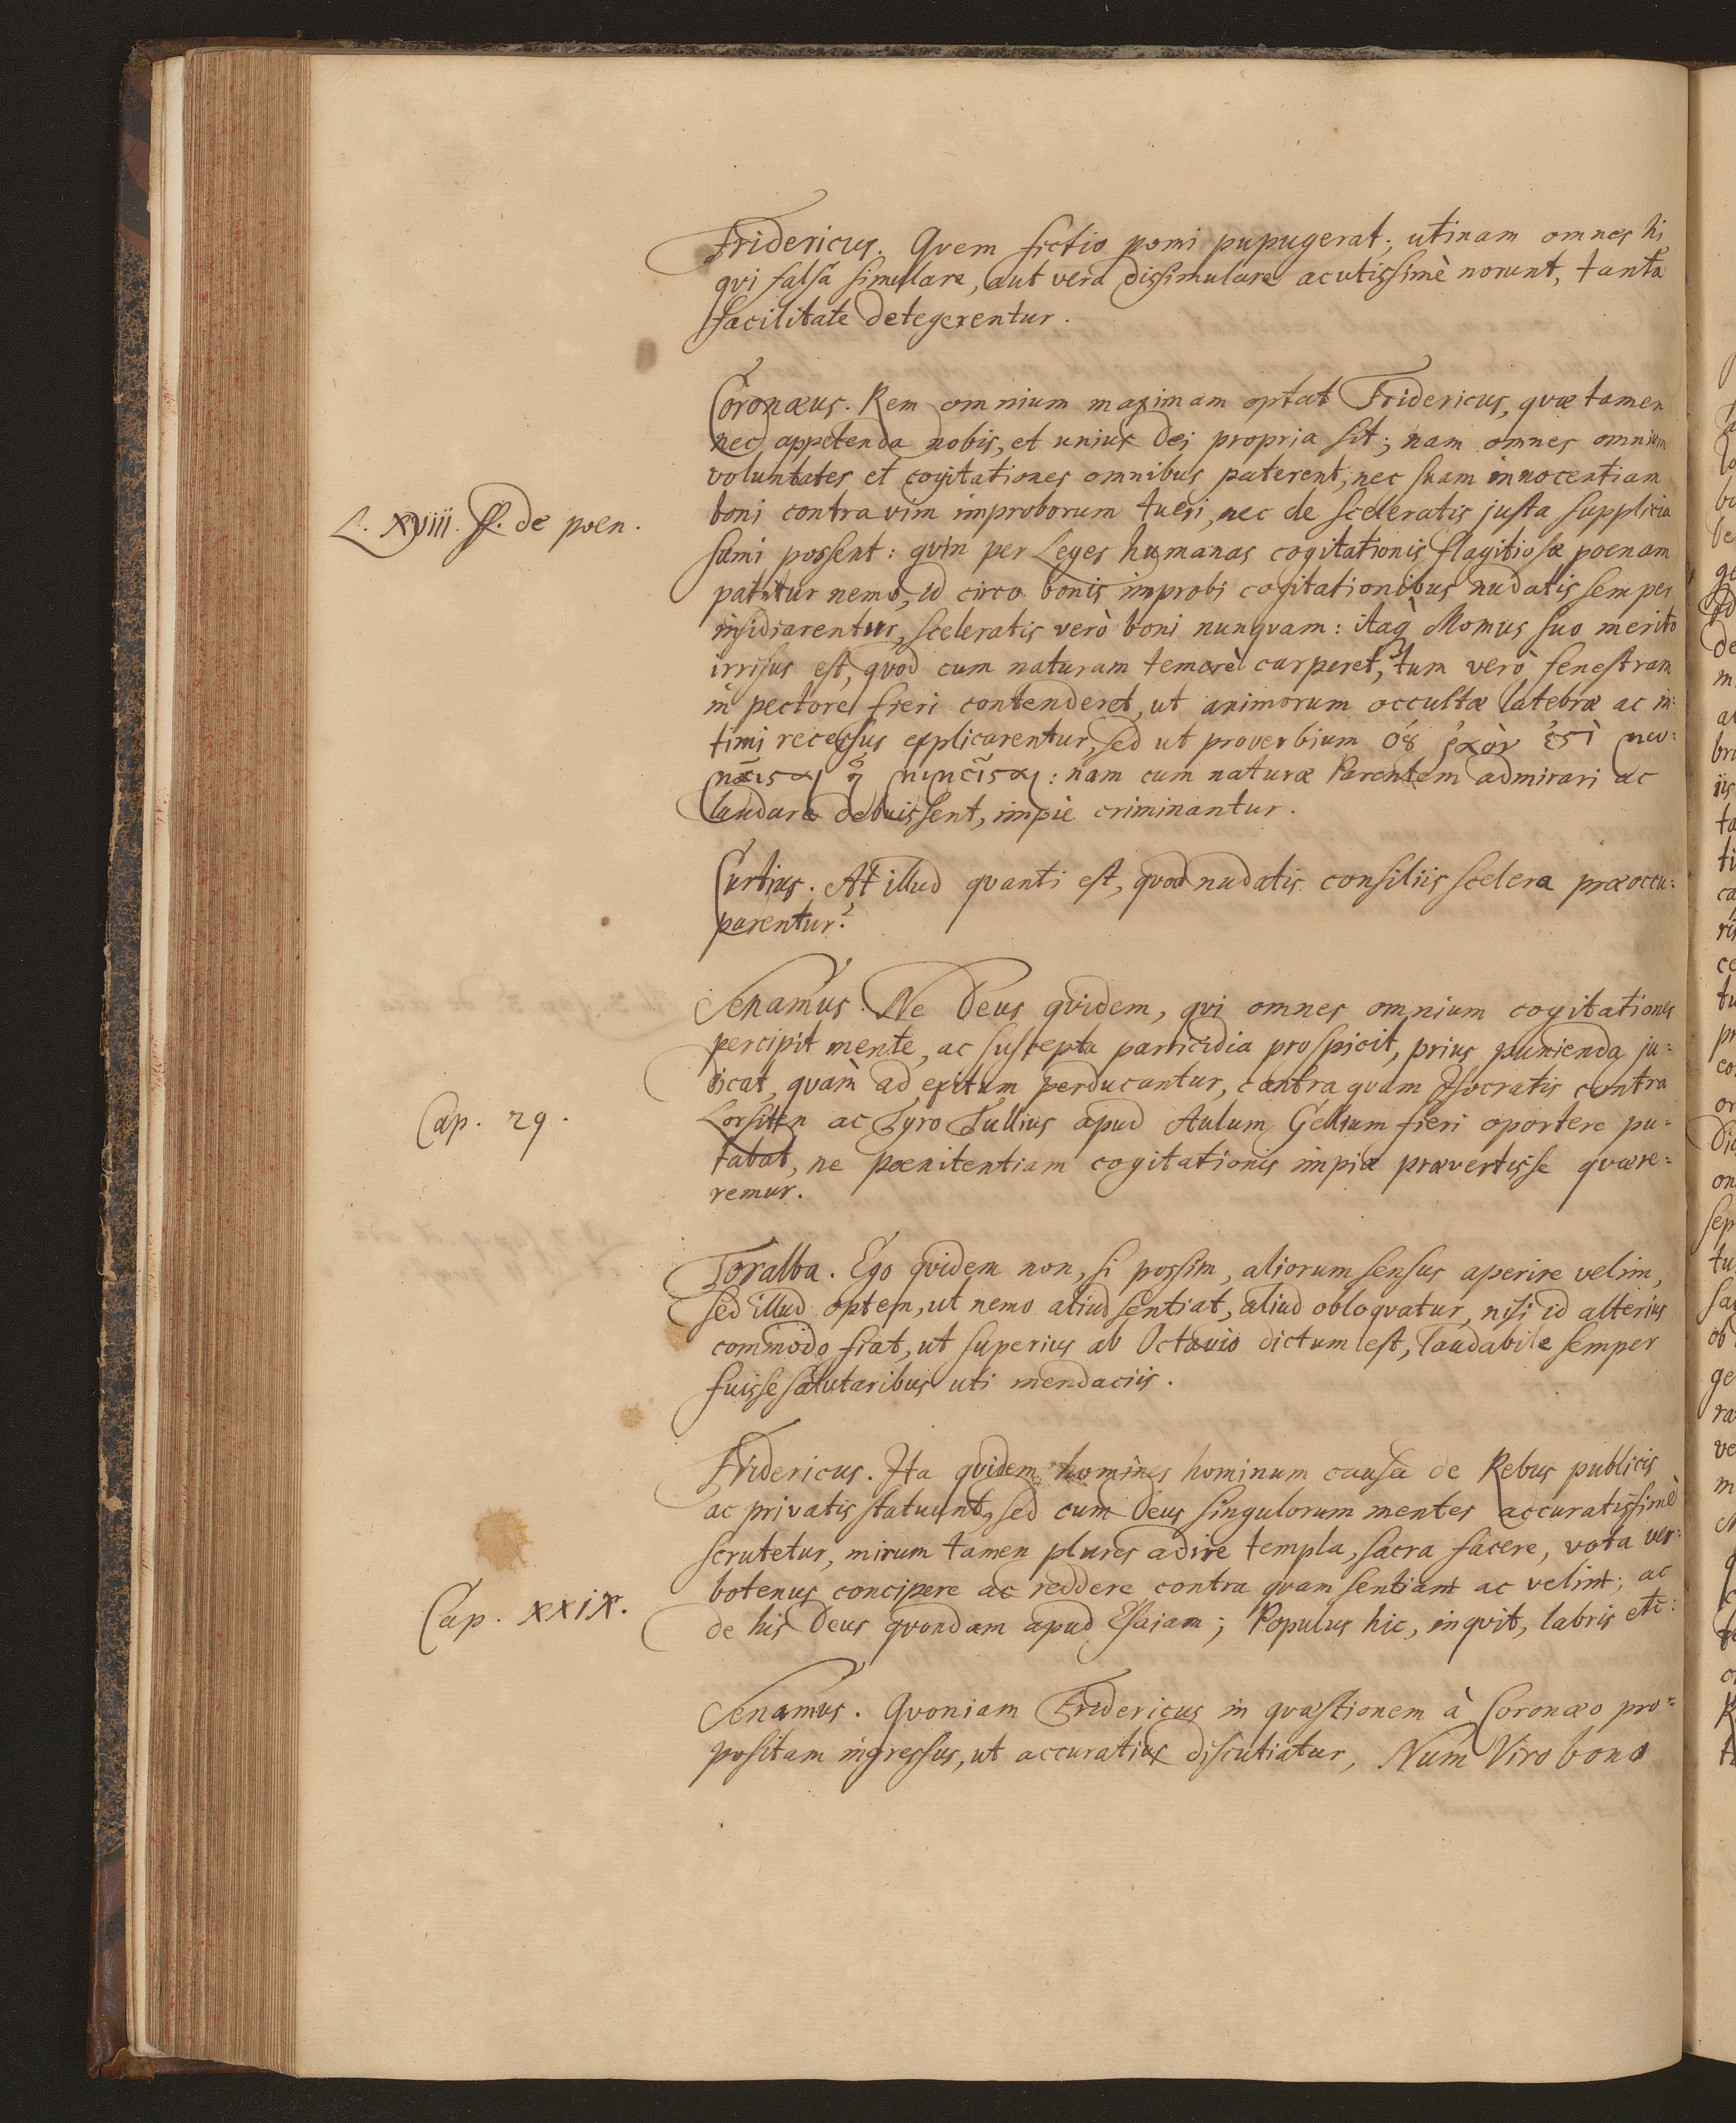 Fridericus. Quem fictio pomi pupugerat; utinam omnes hi,
qui falsa simulare, aut vera dissimulare acutissimè norunt, tanta
facilitate detegerentur.
Coronæus. Rem omnium maximam optat Fridericus, quæ tamen
nec appetenda nobis, et unius Dei propria sit; nam omnes omnium
voluntates et cogitationes omnibus paterent, nec suam innocentiam
L. xviii. ff. de poen.
boni contra vim improborum tueri, nec de sceleratis justa supplicia
sumi possent: quin per Leges humanas cogitationis flagitiosæ poenam
patitur nemo, id circo bonis improbi cogitationibus nudatis semper
insidiarentur, sceleratis verò boni nunquam: itaq Momus suo merito
irrisus est, quod cum naturam temerè carperet, tum verò fenestram
in pectore fieri contenderet, ut animorum occultæ latebræ ac in:
timi recessus explicarentur, sed ut proverbium
: nam cum naturæ Parentem admirari ac
laudare debuissent, impiè criminantur.
Curtius. At illud quanti est, quod nudatis consiliis scelera præoccu:
parentur?
Senamus. Ne Deus quidem, qui omnes omnium cogitationes
percipit mente, ac suscepta parricidia prospicit, prius punienda ju:
dicat, quàm ad exitum perducantur, contra quam Isocratis contra
Cap. 29.
ac Tyro Tullius apud Aulum Gellium fieri oportere pu:
tabat, ne pœnitentiam cogitationis impiæ prævertisse quære:
remur.
Toralba. Ego quidem non, si possim, aliorum sensus aperire velim,
sed illud optem, ut nemo aliud sentiat, aliud obloquatur, nisi id alterius
commodo fiat, ut superius ab Octavio dictum est, laudabile semper
fuisse salutaribus uti mendaciis.
Fridericus. Ita quidem homines hominum causa de Rebus publicis
ac privatis statuunt, sed cum Deus singulorum mentes accuratissimè
scrutetur, mirum tamen plures adire templa, sacra facere, vota ver:
botenus concipere ac reddere contra quam sentiant ac velint; ac
Cap. xxix.
de his Deus quondam apud Esaiam; Populus hic, inquit, labris etc:
Senamus. Quoniam Fridericus in quæstionem à Coronæo pro:
positam ingressus, ut accuratius discutiatur, Num Viro bono